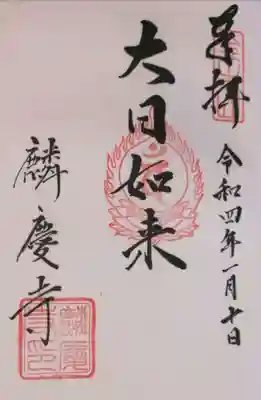 奉拝
令和四年一月十日
大日如来
麟慶寺